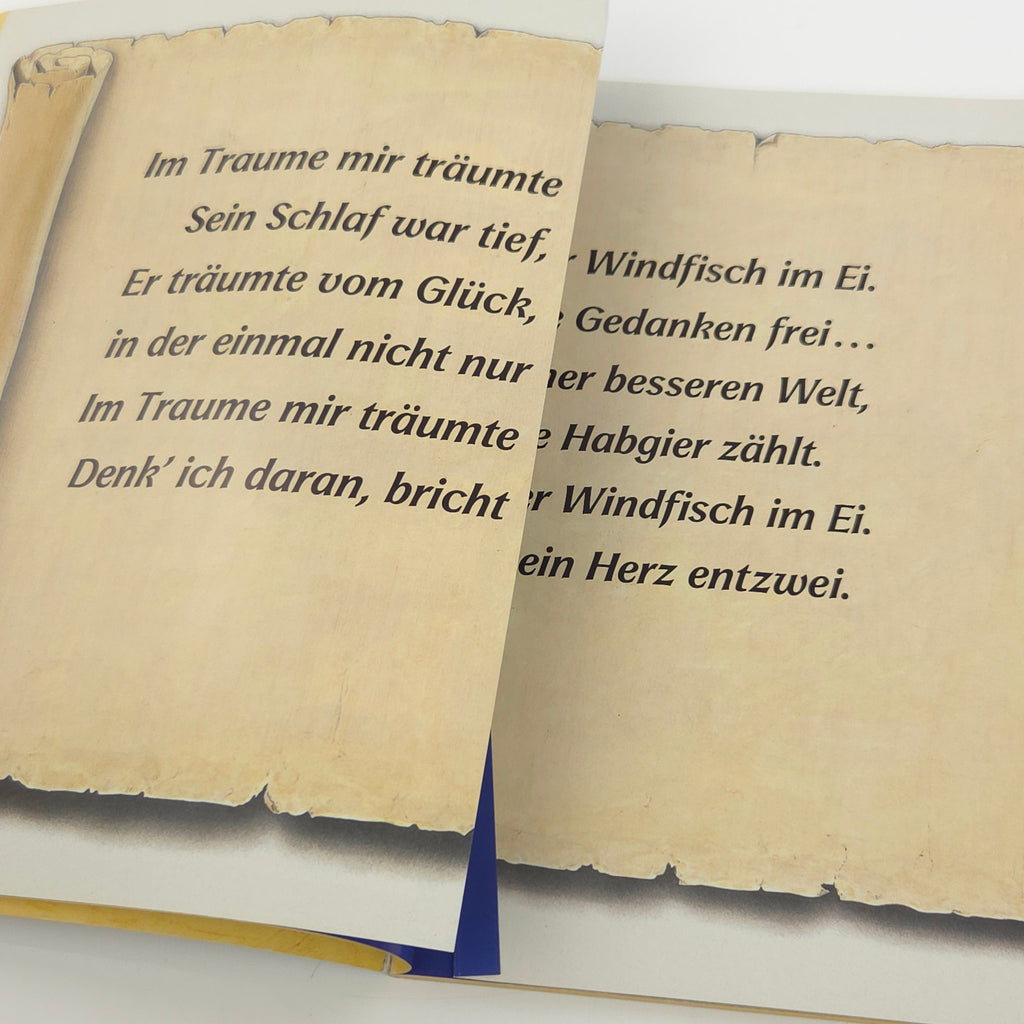 Im Traume mir träumte Windfisch im Ei.
Sein Schlaf war tief, Gedanken frei...
Er träumte vom Glück, besseren Welt,
in der einmal nicht nur Habgier zählt.
Im Traume mir träumte Windfisch im Ei.
Denk' ich daran, bricht ein Herz entzwei.